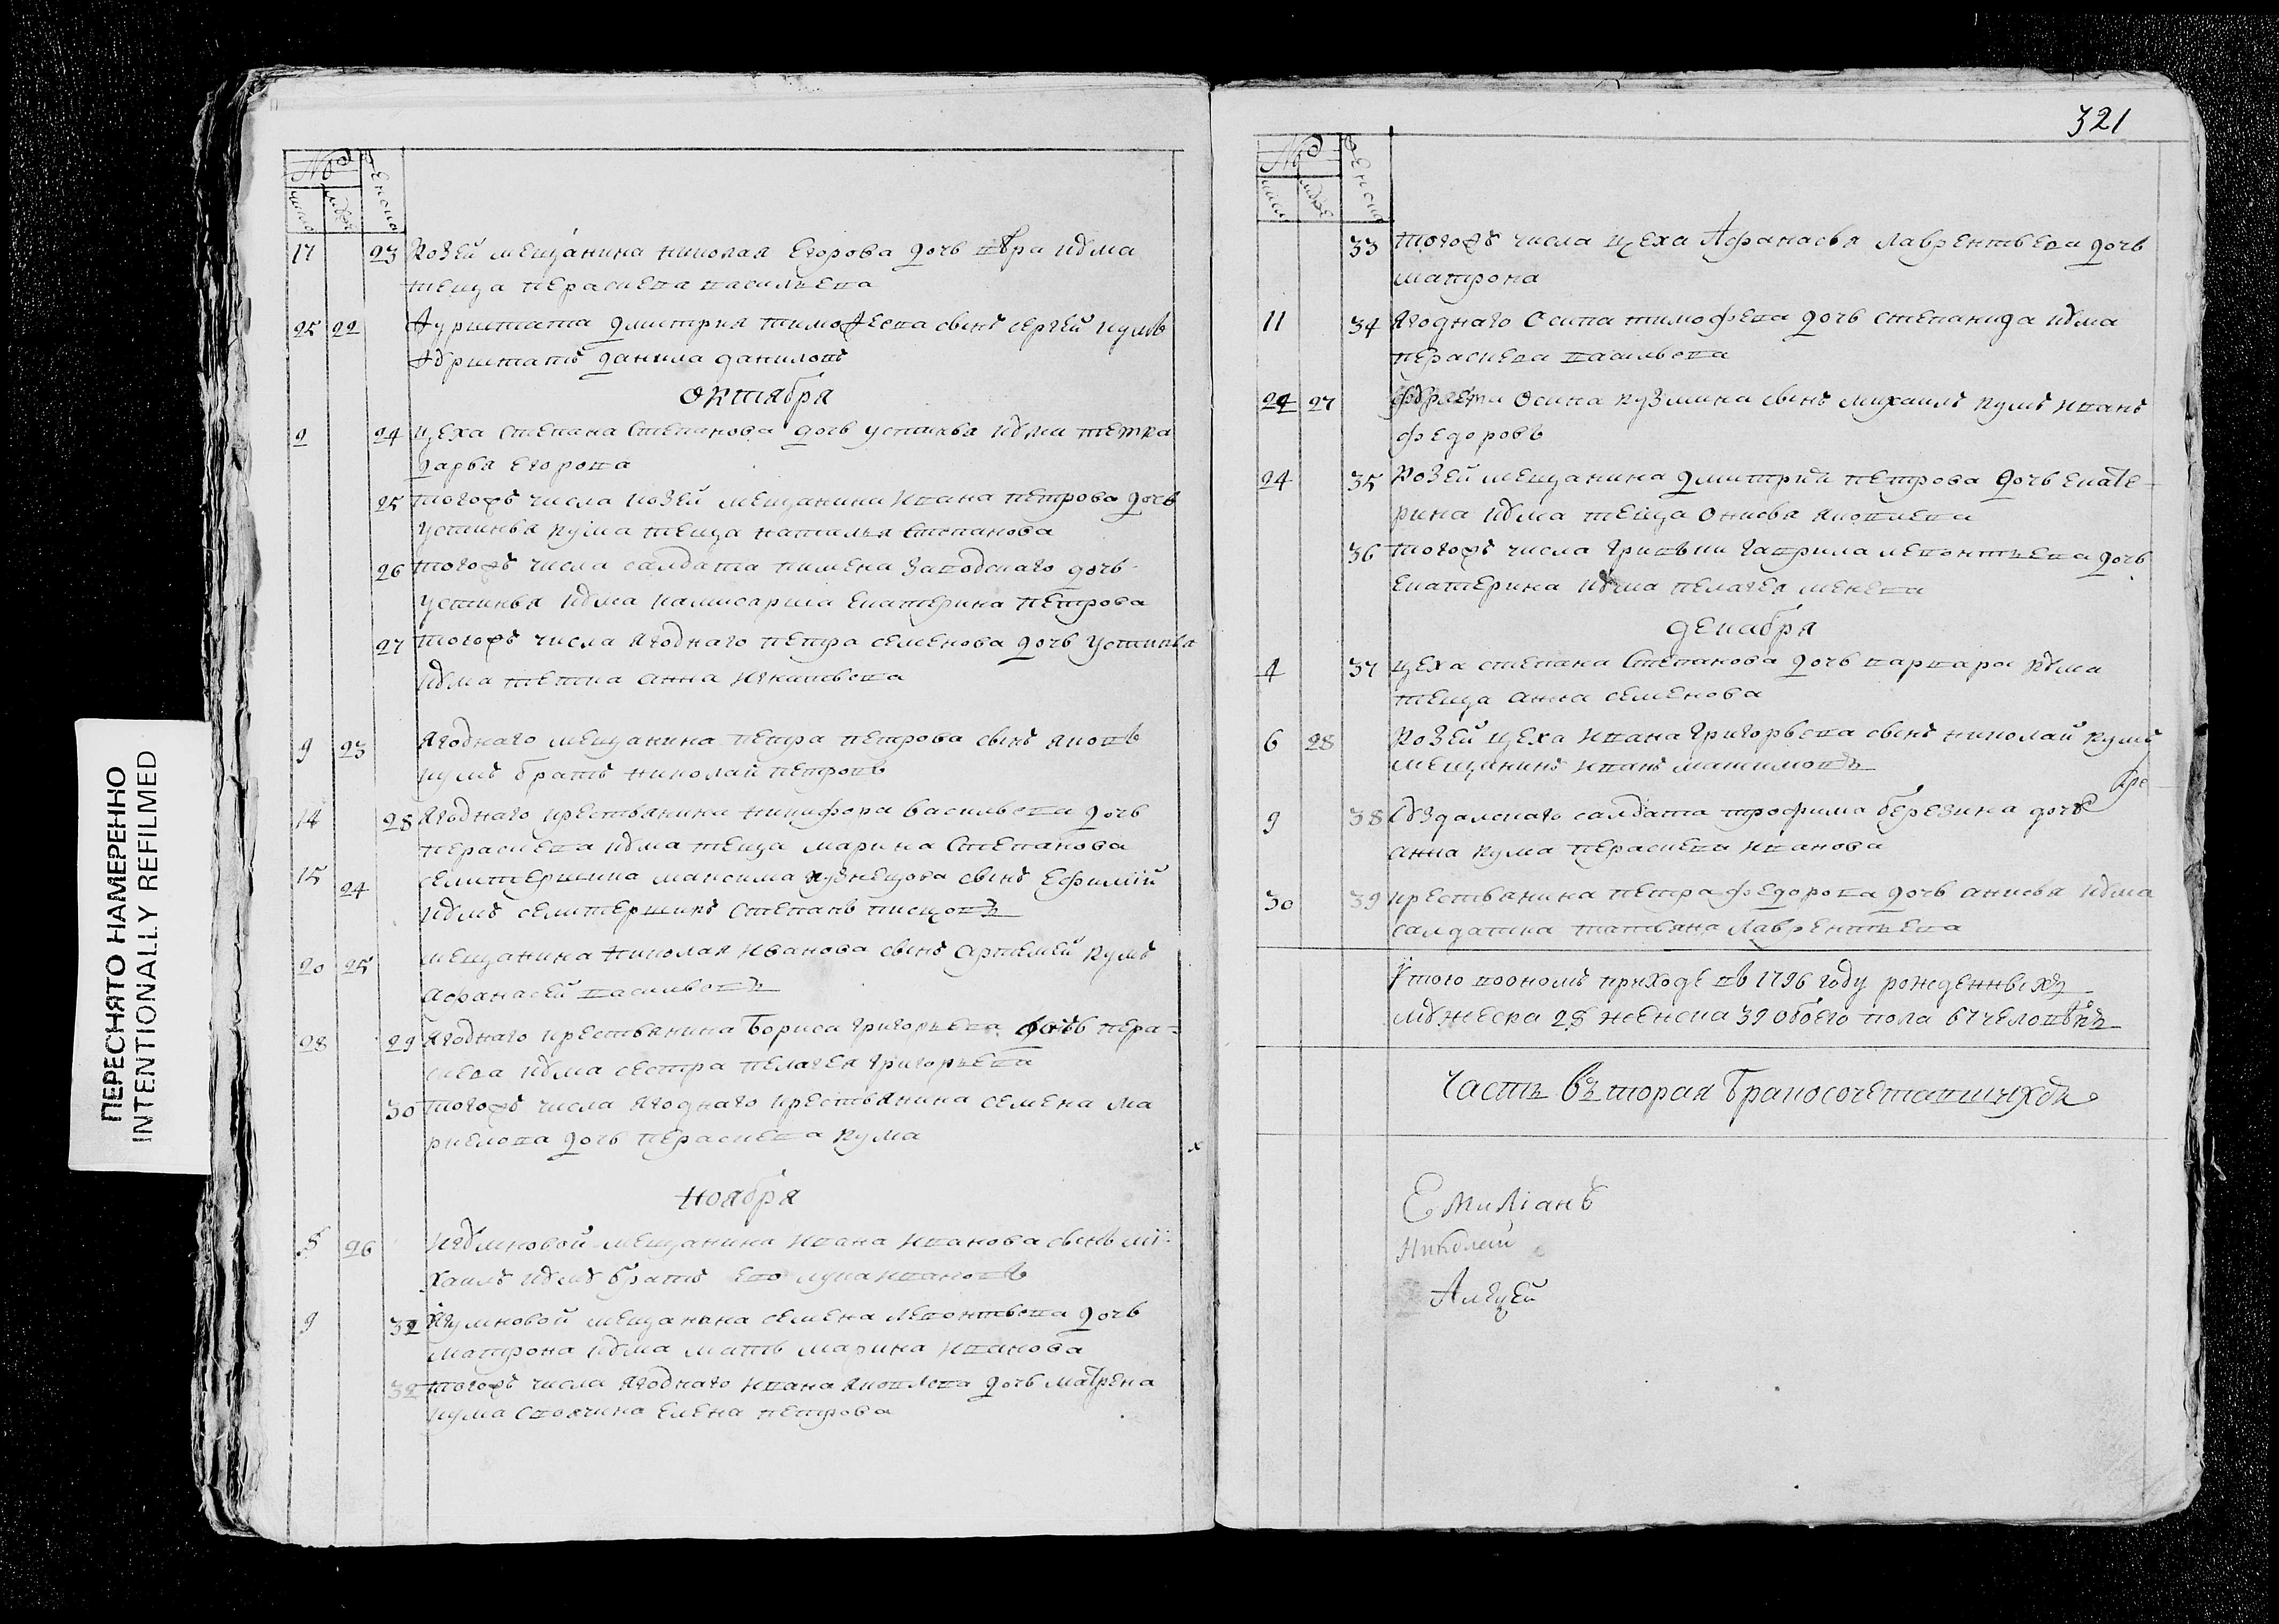 ПЕРЕСНЯТО НАМЕРЕННО
INTENTIONALLY REFILMED
№
женска
17 23 Козей мещанина николая Егорова дочь вѣра кума
теща перасковя васильева
25 22 Фурштата дмитрия тимофеева сынъ сергей кумъ
фурштатъ данила даниловъ
октября
2 24 цеха степана степанова дочь устинья кума тетка
дарья егорова
25 тогожъ числа козей мещанина ивана петрова дочь
устинья кума теща наталья степанова
26 тогожъ числа салдата пимена заводскаго дочь
устинья кума камисарша екатерина петрова
27 тогожъ числа ягоднаго петра семенова дочь устинья
кума тетка анна
9 23 ягоднаго мещанина петра петрова сынъ яковъ
кумъ братъ николай петровъ
14 28 ягоднаго крестьянина никифора васильева дочь
кума теща марина степанова
15 24 селитершика максима кузнецова сынъ ефимій
кумъ селитершикъ степанъ писцовъ
20 25 мещанина николая иванова сынъ артемей кумъ
афанасей васильевъ
28 29 ягоднаго крестьянина бориса григорьева дочь пера-
скева кума сестра пелагея григорьева
30 тогожъ числа ягоднаго крестьянина семена ма
дочь кума
ноября
5 26 мещанина ивана иванова сынъ ми-
хаилъ кумъ братъ ево лука ивановъ
9 31 мещанина семена леонтьева дочь
матрона кума мать марина иванова
32 тогожъ числа ягоднаго ивана яковлева дочь матрена
кума своячина елена петрова
321
№
женска
33 тогожъ числа цеха Афанасья лаврентьева дочь
матрона
11 34 ягоднаго осипа тимофева дочь степанида кума
васильева
22 27 осипа кузмина сынъ михаилъ кумъ иванъ
федоровъ
24 35 козей мещанина дмитрия петрова дочь екате-
рина кума теща онисья яковлева
36 тогожъ числа гаврила левонтьева дочь
екатерина кума пелагея
декабря
4 37 цеха степана степанова дочь варвара кума
теща анна семенова
6 28 козей цеха ивана григорьева сынъ николай кумъ
мещанинъ иванъ максимовъ
9 38 суздалскаго салдата трофима березина дочь
анна кума иванова
30 39 крестьянина петра федорова дочь анисья кума
салдатка татьяна лаврентьева
итого поономъ приходе въ 1796 году рожденныхъ
мужеска 28 женска 39 обоего пола 67 человѣкъ
Часть вторая бракосочетавшихся
Емиліанъ
николай
Алеѯей